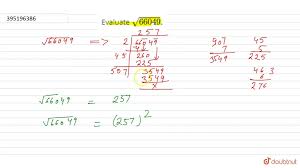 395196386
Evaluate √66049.
257
√66049 => 2 | 66049
4
45 | 260
225
507 | 3549
3549
x
507
7
3549
45
5
225
46 3
6
276
√66049 = 257
√66049 = (257)²
doubtnut